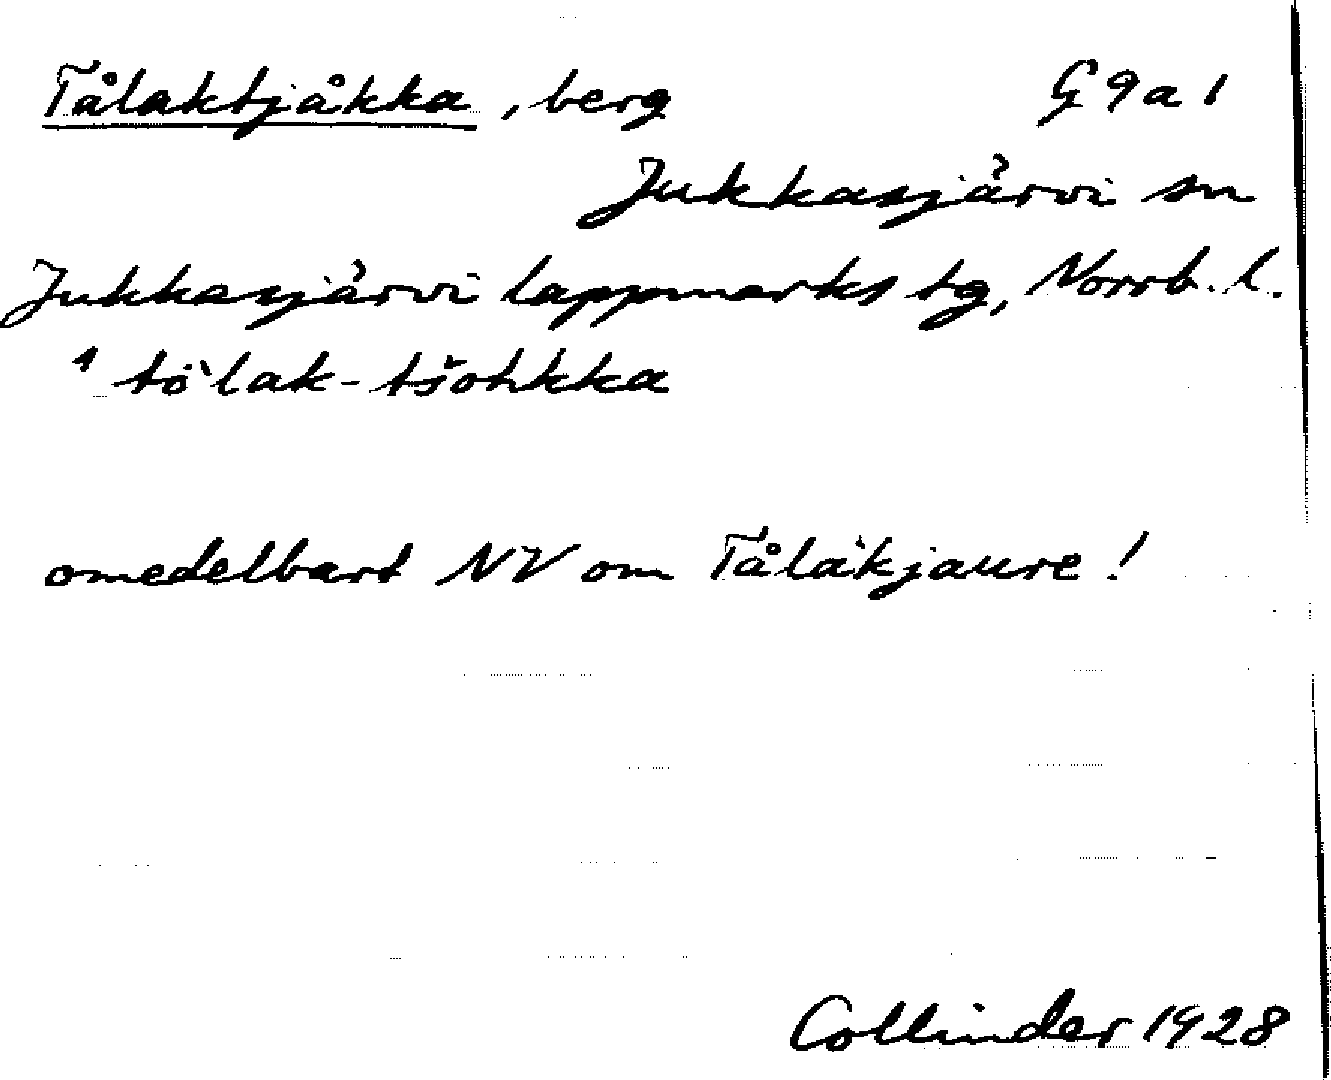 Tålaktjåkka, berg G 9 a 1
Jukkasjärvi sn
Jukkasjärvi lappmarks tg, Norrb. l.
¹ tö̀lak-tšohkka
omedelbart NV om Tålåkjaure!
Collinder 1928